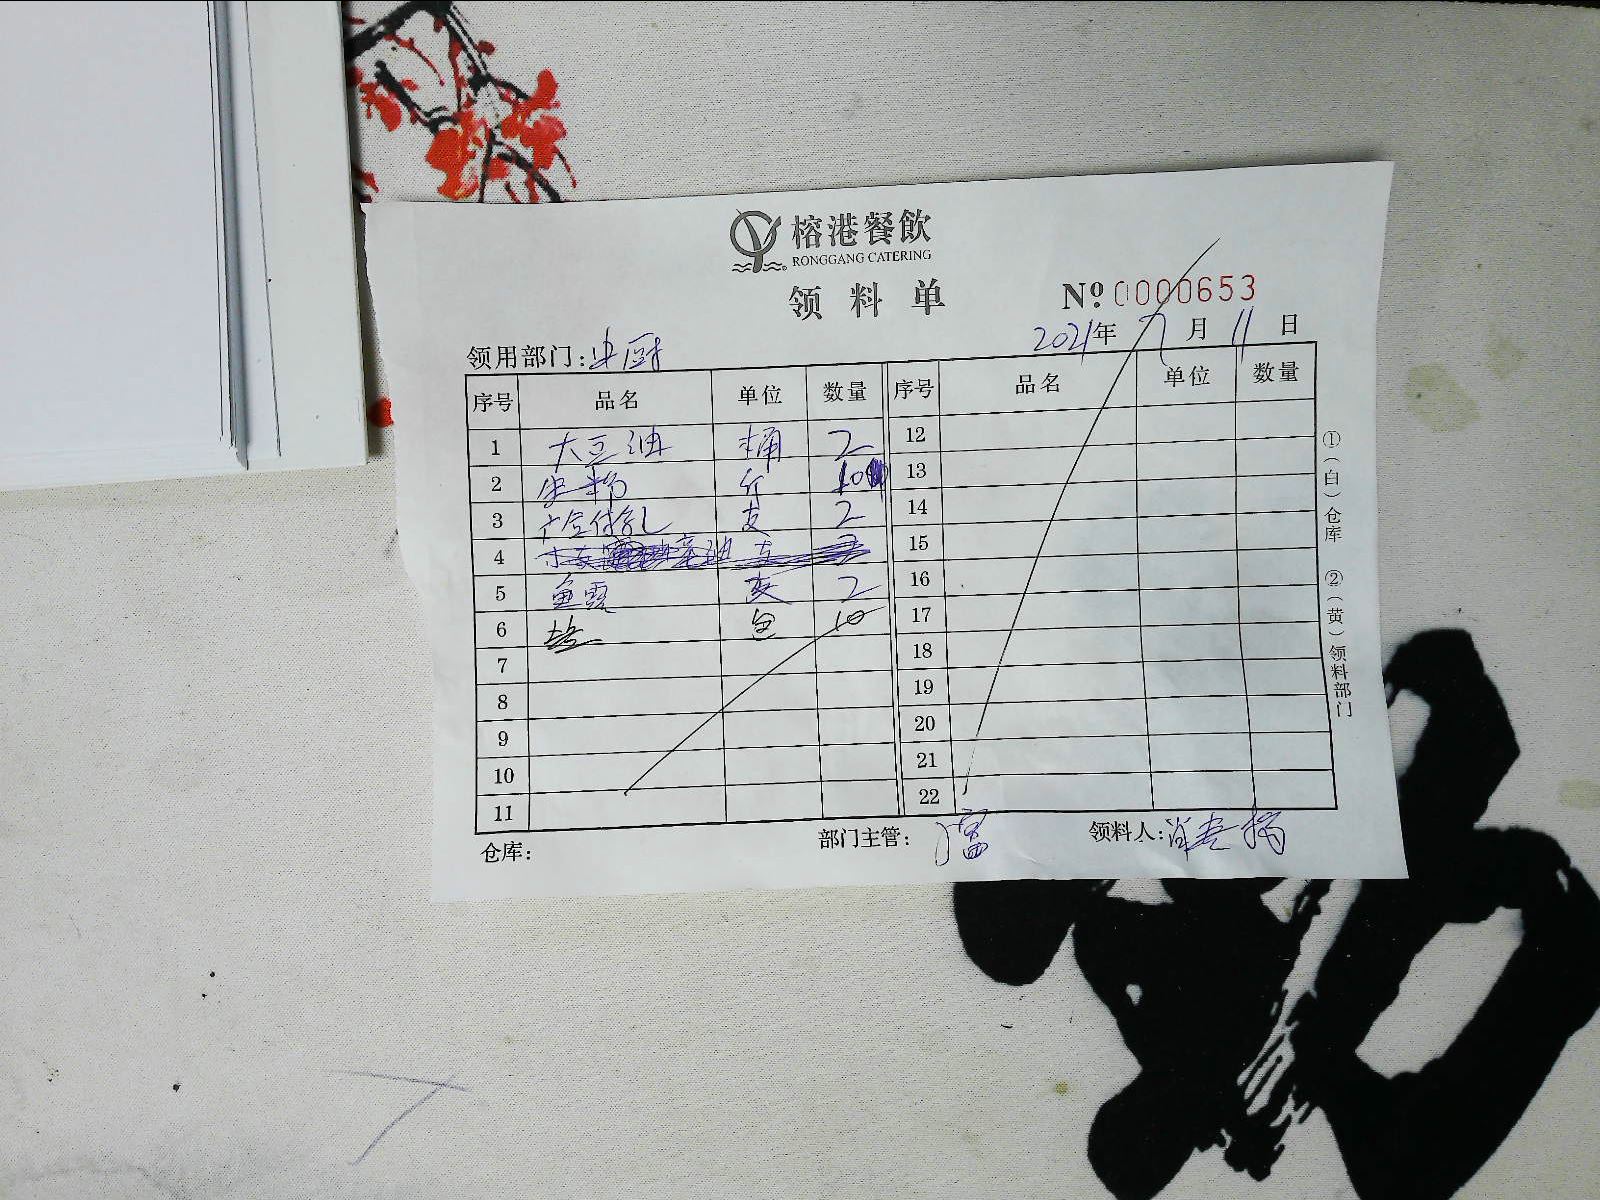 榕港餐飲
RONGGANG CATERING
领料单
№ 0000653
2021年 7月 11日
领用部门:中厨
序号 品名 单位 数量 序号 品名 单位 数量
1 大豆油 桶 2 12
2 生粉 斤 10 13
3 支 2 14
4 15
5 鱼露 支 2 16
6 盐 包 10 17
7 18
8 19
9 20
10 21
11 22
仓库: 部门主管: 领料人:
①(白)仓库 ②(黄)领料部门